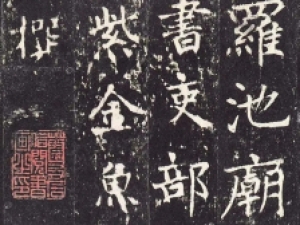 羅池廟
書吏部
紫金魚
撰